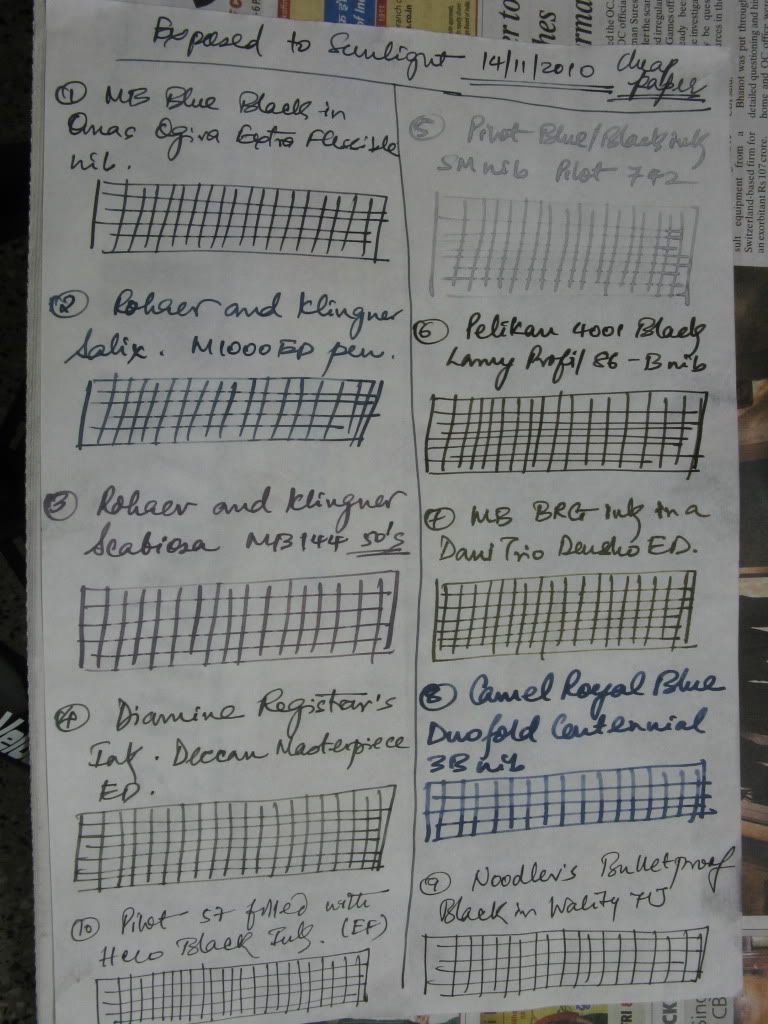 Exposed to Sunlight 14/11/2010 cheap
paper
① MB Blue Black in
Omas Ogiva Extra Flexible
nib.
② Rohrer and Klingner
Salix. M1000 EP pen.
③ Rohrer and Klingner
Scabiosa MB 144 50's
④ Diamine Registrar's
Ink. Deccan Masterpiece
ED.
⑩ Pilot 57 filled with
Hero Black Ink. (EF)
⑤ Pilot Blue/Black ink
SM nib Pilot 742
⑥ Pelikan 4001 Black
Lamy Profil 86 - B nib
⑦ MB BRG ink in a
Dani Trio Densho ED.
⑧ Camel Royal Blue
Duofold Centennial
3B nib
⑨ Noodler's Bulletproof
Black in Wality 71J
of Ind
er to
hes
rma
Bhanot was put through
detailed questioning and hi
home and OC office were
sult equipment from a
Switzerland-based firm for
an exorbitant Rs 107 crore.